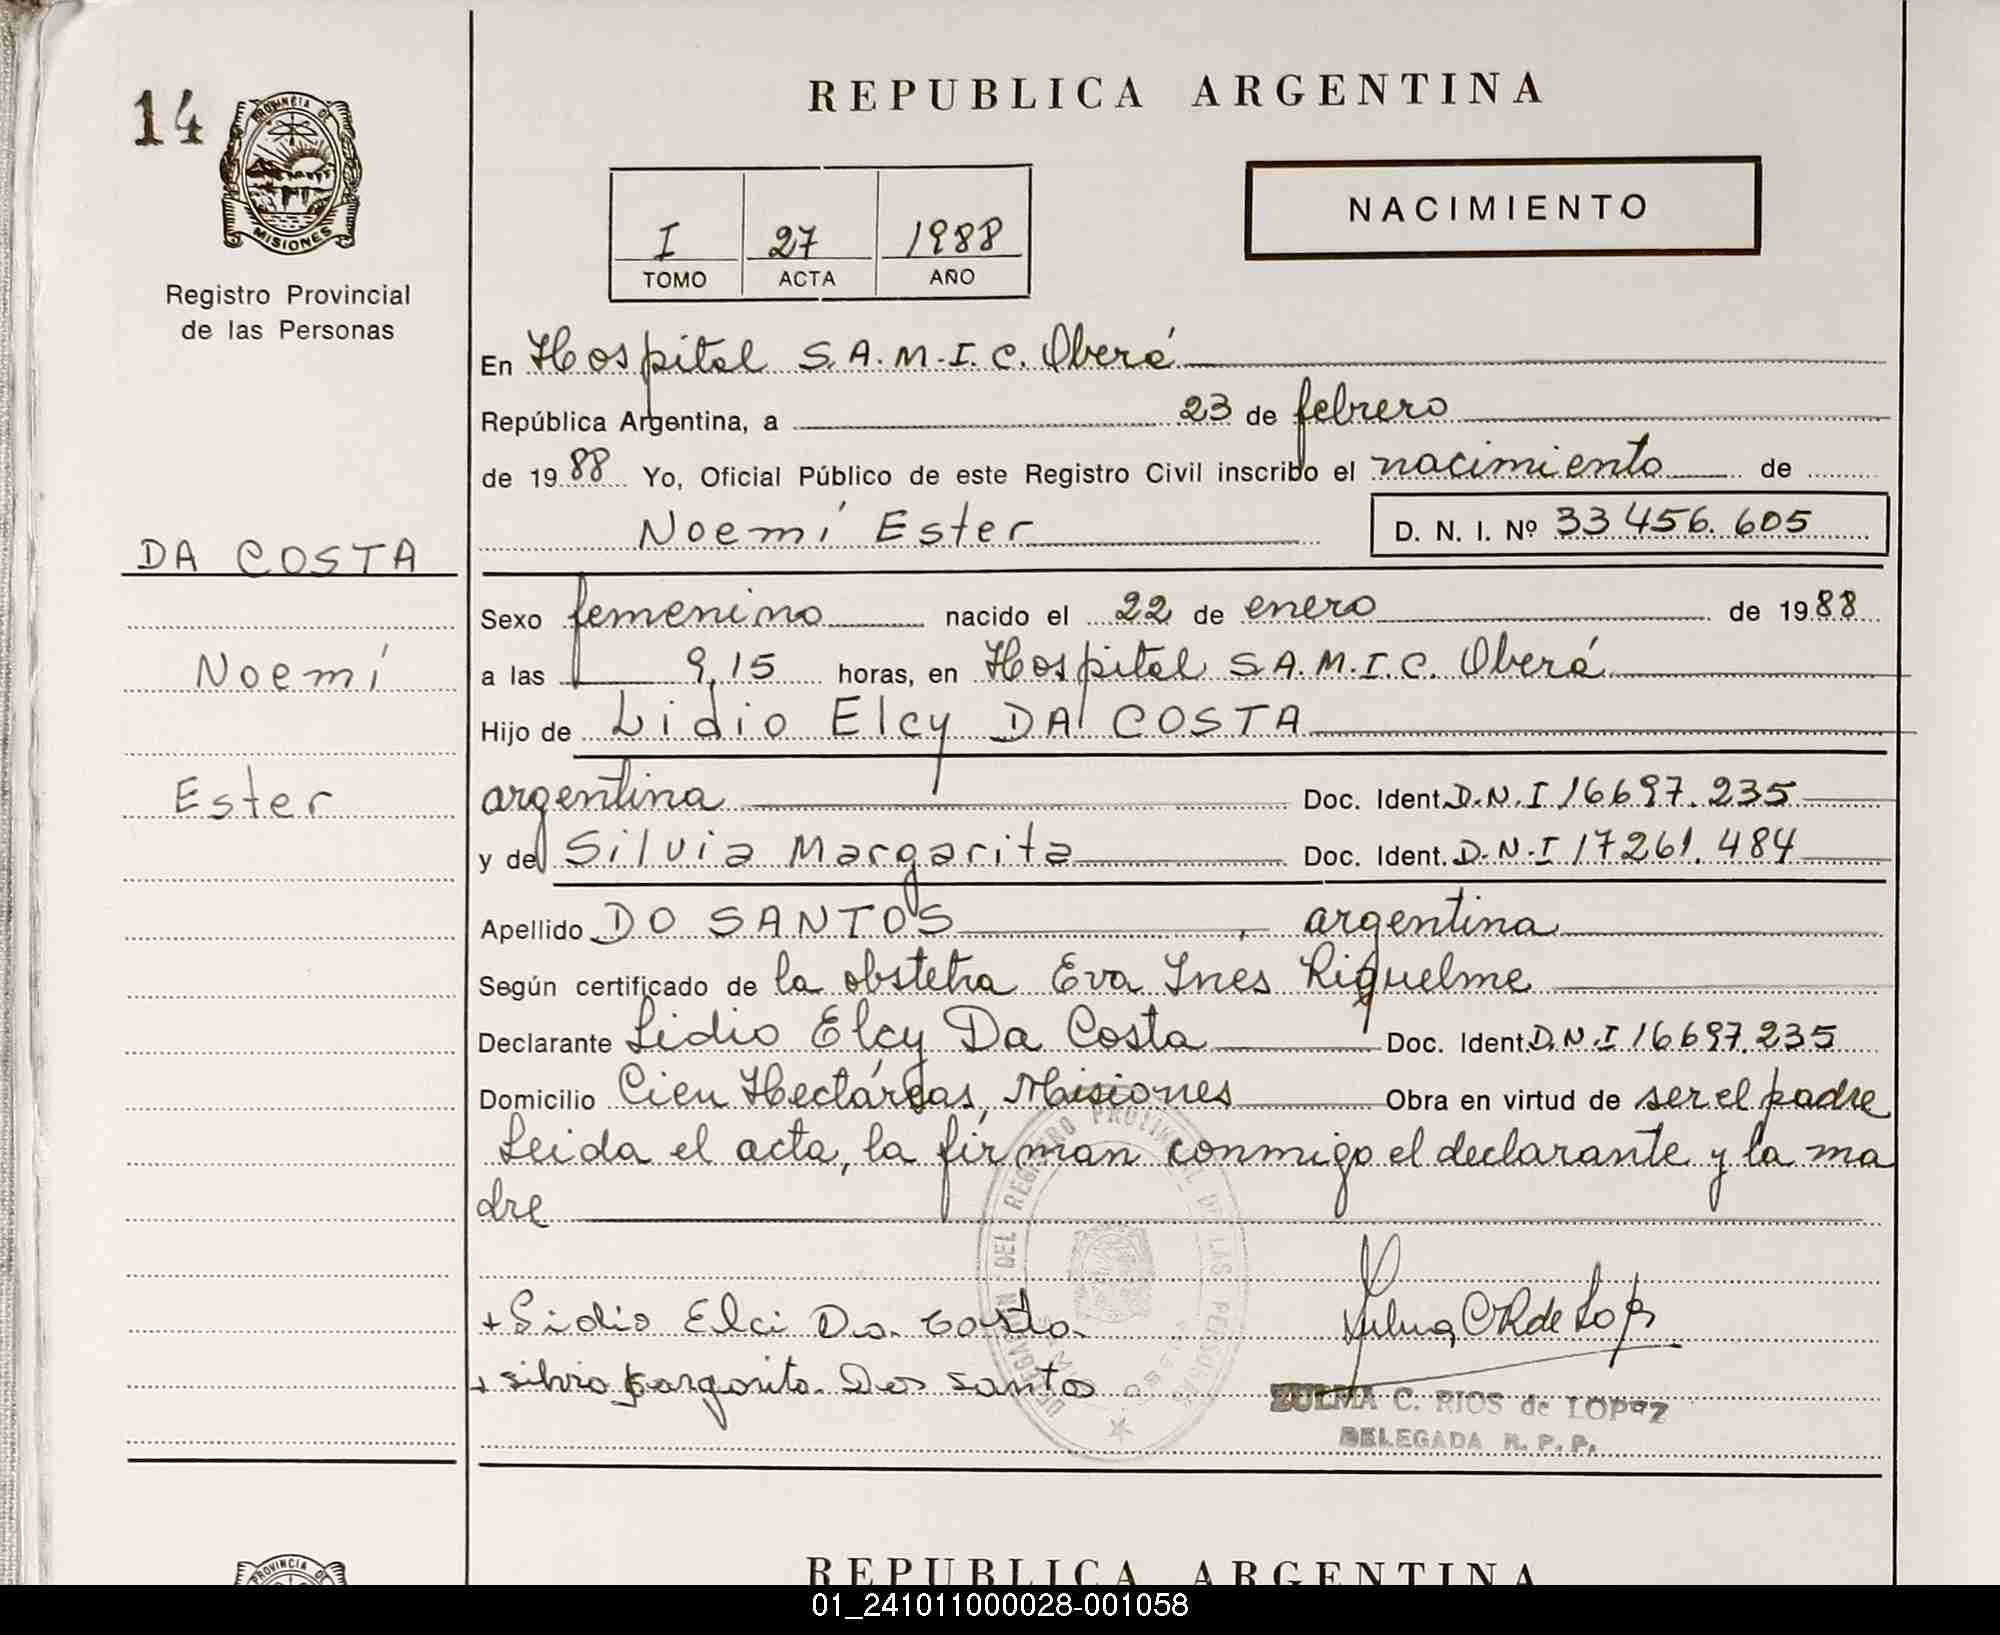 REPUBLICA ARGENTINA
14
PROVINCIA DE
MISIONES
NACIMIENTO
I 27 1988
TOMO ACTA AÑO
Registro Provincial
de las Personas
En Hospital S.A.M.I.C. Oberá
República Argentina, a 23 de febrero
de 1988 Yo, Oficial Público de este Registro Civil inscribo el nacimiento de
Noemí Ester D. N. I. Nº 33 456. 605
DA COSTA
Noemí
Ester
Sexo femenino nacido el 22 de enero de 1988
a las 9,15 horas, en Hospital S.A.M.I.C. Oberá
Hijo de Lidio Elcy DA COSTA
argentina Doc. Ident. D.N.I 16697.235
y de Silvia Margarita Doc. Ident. D.N.I 17261.484
Apellido DO SANTOS, argentina
Según certificado de la obstetra Eva Ines Riquelme
Declarante Lidio Elcy Da Costa Doc. Ident. D.N.I 16697.235
Domicilio Cien Hectáreas, Misiones Obra en virtud de ser el padre
Leida el acta, la firman conmigo el declarante y la ma
dre
DELEGACION DEL REGISTRO PROVINCIAL DE LAS PERSONAS
+ Lidio Elci Da Costa
+ silvia Margarita Dos santos
ZULMA C. RIOS de LOPEZ
DELEGADA R. P. P.
PROVINCIA DE
REPUBLICA ARGENTINA
01_241011000028-001058